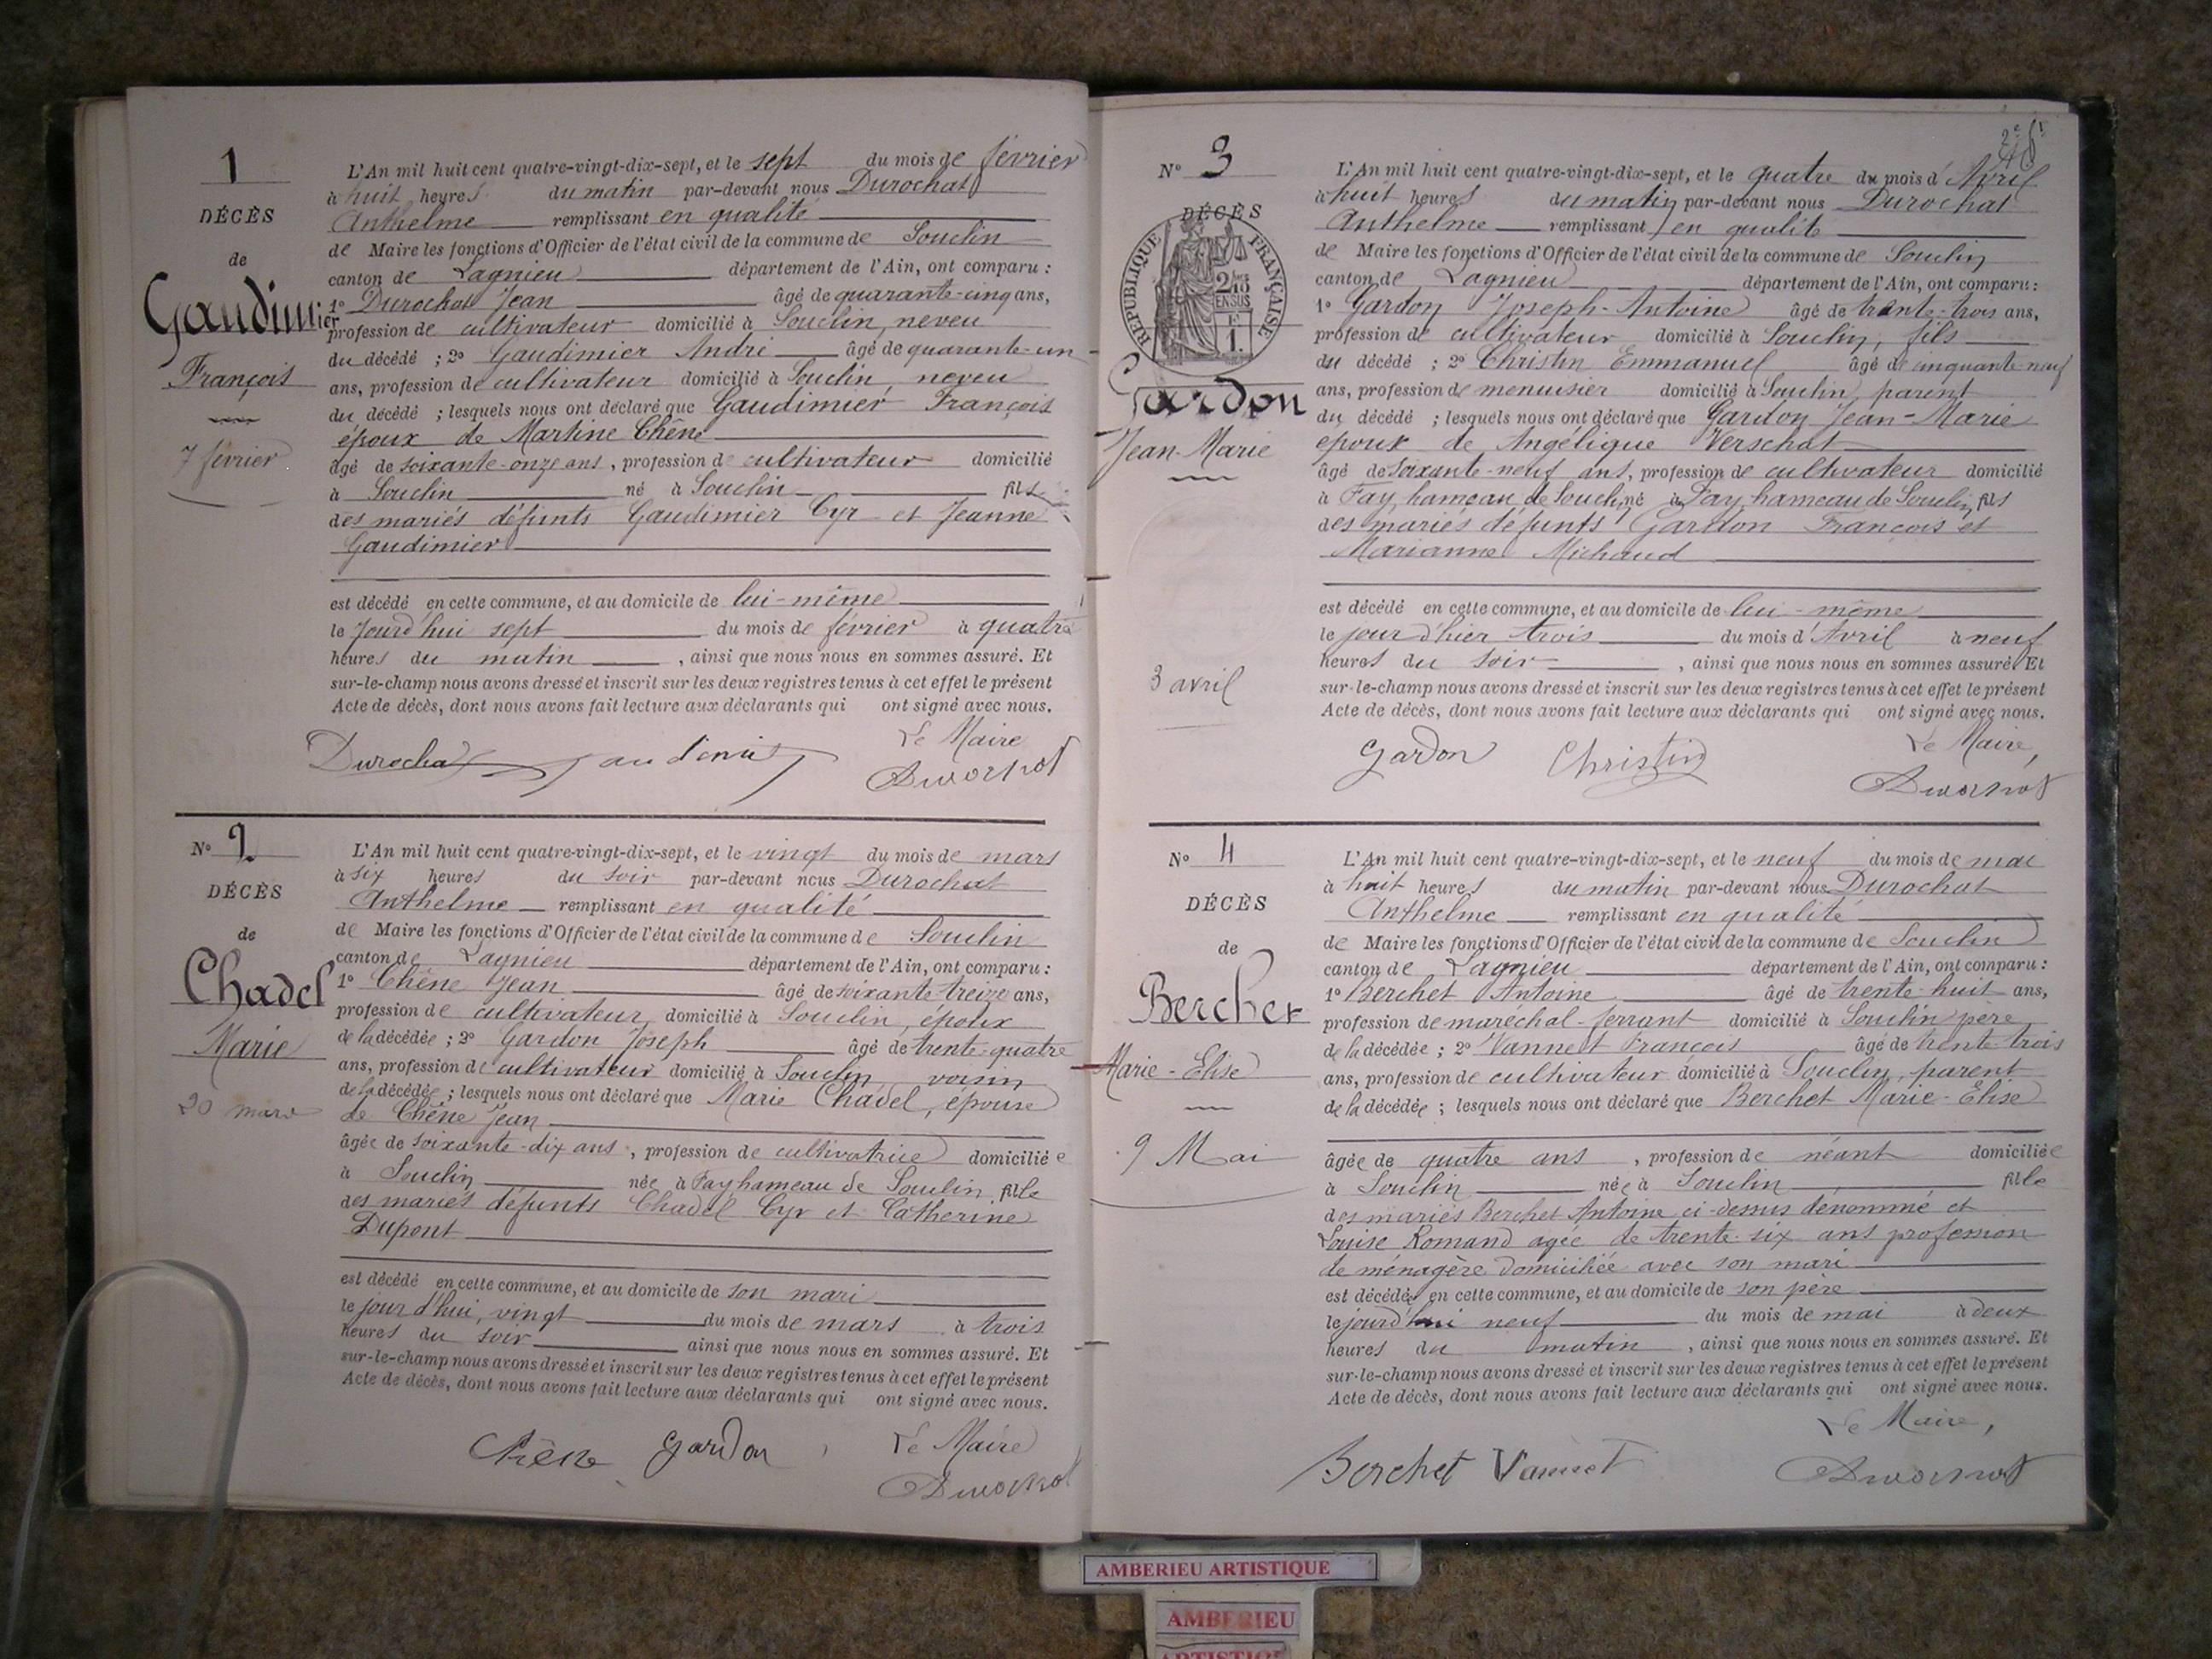 1
DÉCÈS
de
Gaudimier
François
7 février
L'An mil huit cent quatre-vingt-dix-sept, et le sept du mois de février
à huit heures du matin par-devant nous Durochat
Anthelme remplissant en qualité
de Maire les fonctions d'Officier de l'état civil de la commune de Souclin
canton de Lagnieu département de l'Ain, ont comparu :
1º Durochat Jean âgé de quarante-cinq ans,
profession de cultivateur domicilié à Souclin, neveu
du décédé ; 2º Gaudimier André âgé de quarante-un
ans, profession de cultivateur domicilié à Souclin, neveu
du décédé ; lesquels nous ont déclaré que Gaudimier François
époux de Martine Chêne
âgé de soixante-onze ans, profession de cultivateur domicilié
à Souclin né à Souclin fils
des mariés défunts Gaudimier Cyr et Jeanne
Gaudimier
est décédé en cette commune, et au domicile de lui-même
le jourd'hui sept du mois de février à quatre
heures du matin, ainsi que nous nous en sommes assuré. Et
sur-le-champ nous avons dressé et inscrit sur les deux registres tenus à cet effet le présent
Acte de décès, dont nous avons fait lecture aux déclarants qui ont signé avec nous.
Le Maire
Durochat Gaudimier Durochat
Nº 2
DÉCÈS
de
Chadel
Marie
20 mars
L'An mil huit cent quatre-vingt-dix-sept, et le vingt du mois de mars
à six heures du soir par-devant nous Durochat
Anthelme remplissant en qualité
de Maire les fonctions d'Officier de l'état civil de la commune de Souclin
canton de Lagnieu département de l'Ain, ont comparu :
1º Chêne Jean âgé de soixante-treize ans,
profession de cultivateur domicilié à Souclin, époux
de la décédée ; 2º Gardon Joseph âgé de trente-quatre
ans, profession de cultivateur domicilié à Souclin, voisin
de la décédée ; lesquels nous ont déclaré que Marie Chadel, épouse
de Chêne Jean
âgée de soixante-dix ans, profession de cultivatrice domiciliée
à Souclin née à Fay hameau de Souclin fille
des mariés défunts Chadel Cyr et Catherine
Dupont
est décédé en cette commune, et au domicile de son mari
le jour d'hui, vingt du mois de mars à trois
heures du soir ainsi que nous nous en sommes assuré. Et
sur-le-champ nous avons dressé et inscrit sur les deux registres tenus à cet effet le présent
Acte de décès, dont nous avons fait lecture aux déclarants qui ont signé avec nous.
Chêne Gardon Le Maire
Durochat
Nº 3
DÉCÈS
RÉPUBLIQUE FRANÇAISE
2/10
EN SUS
1.
Gardon
Jean-Marie
3 avril
L'An mil huit cent quatre-vingt-dix-sept, et le quatre du mois d'Avril
à huit heures du matin par-devant nous Durochat
Anthelme remplissant en qualité
de Maire les fonctions d'Officier de l'état civil de la commune de Souclin
canton de Lagnieu département de l'Ain, ont comparu :
1º Gardon Joseph-Antoine âgé de trente-trois ans,
profession de cultivateur domicilié à Souclin, fils
du décédé ; 2º Christin Emmanuel âgé de cinquante-neuf
ans, profession de menuisier domicilié à Souclin, parent
du décédé ; lesquels nous ont déclaré que Gardon Jean-Marie
époux de Angélique Verschat
âgé de soixante-neuf ans, profession de cultivateur domicilié
à Fay, hameau de Souclin né à Fay, hameau de Souclin, fils
des mariés défunts Gardon François et
Marianne Michaud
est décédé en cette commune, et au domicile de lui-même
le jour d'hier trois du mois d'Avril à neuf
heures du soir, ainsi que nous nous en sommes assuré. Et
sur-le-champ nous avons dressé et inscrit sur les deux registres tenus à cet effet le présent
Acte de décès, dont nous avons fait lecture aux déclarants qui ont signé avec nous.
Gardon Christin Le Maire,
Durochat
Nº 4
DÉCÈS
de
Berchet
Marie-Elise
9 Mai
L'An mil huit cent quatre-vingt-dix-sept, et le neuf du mois de mai
à huit heures du matin par-devant nous Durochat
Anthelme remplissant en qualité
de Maire les fonctions d'Officier de l'état civil de la commune de Souclin
canton de Lagnieu département de l'Ain, ont comparu :
1º Berchet Antoine âgé de trente-huit ans,
profession de maréchal-ferrant domicilié à Souclin père
de la décédée ; 2º Vannet François âgé de trente-trois
ans, profession de cultivateur domicilié à Souclin, parent
de la décédée ; lesquels nous ont déclaré que Berchet Marie-Elise
âgée de quatre ans, profession de néant domiciliée
à Souclin née à Souclin fille
des mariés Berchet Antoine ci-dessus dénommé et
Louise Romand agée de trente-six ans profession
de ménagère domiciliée avec son mari
est décédée en cette commune, et au domicile de son père
le jourd'hui neuf du mois de mai à deux
heures du matin, ainsi que nous nous en sommes assuré. Et
sur-le-champ nous avons dressé et inscrit sur les deux registres tenus à cet effet le présent
Acte de décès, dont nous avons fait lecture aux déclarants qui ont signé avec nous.
Le Maire,
Berchet Vannet Durochat
AMBERIEU ARTISTIQUE
AMBERIEU
ARTISTIQUE